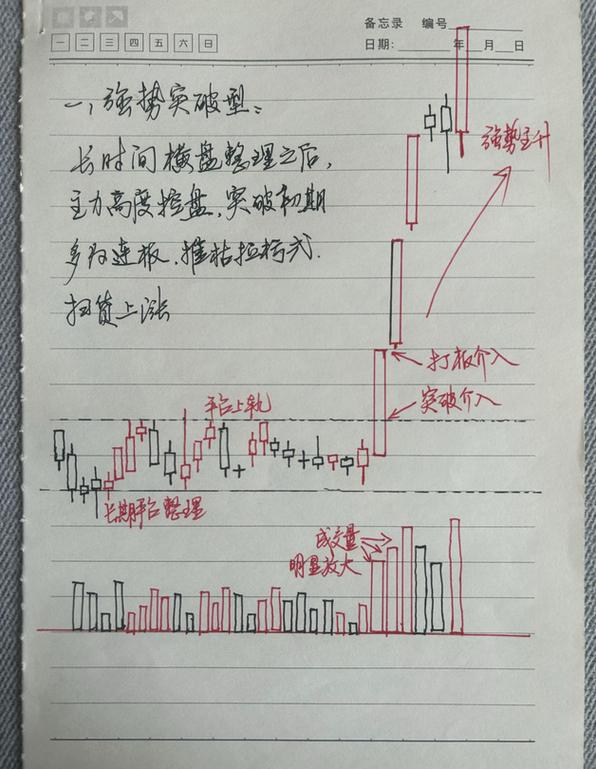 备忘录 编号
一 二 三 四 五 六 日
日期: 年 月 日
一、强势突破型:
长时间横盘整理之后,
主力高度控盘,突破初期
多为连板,摧枯拉朽式
扫货上涨
强势主升
打板介入
突破介入
平台上轨
长期平台整理
成交量
明显放大